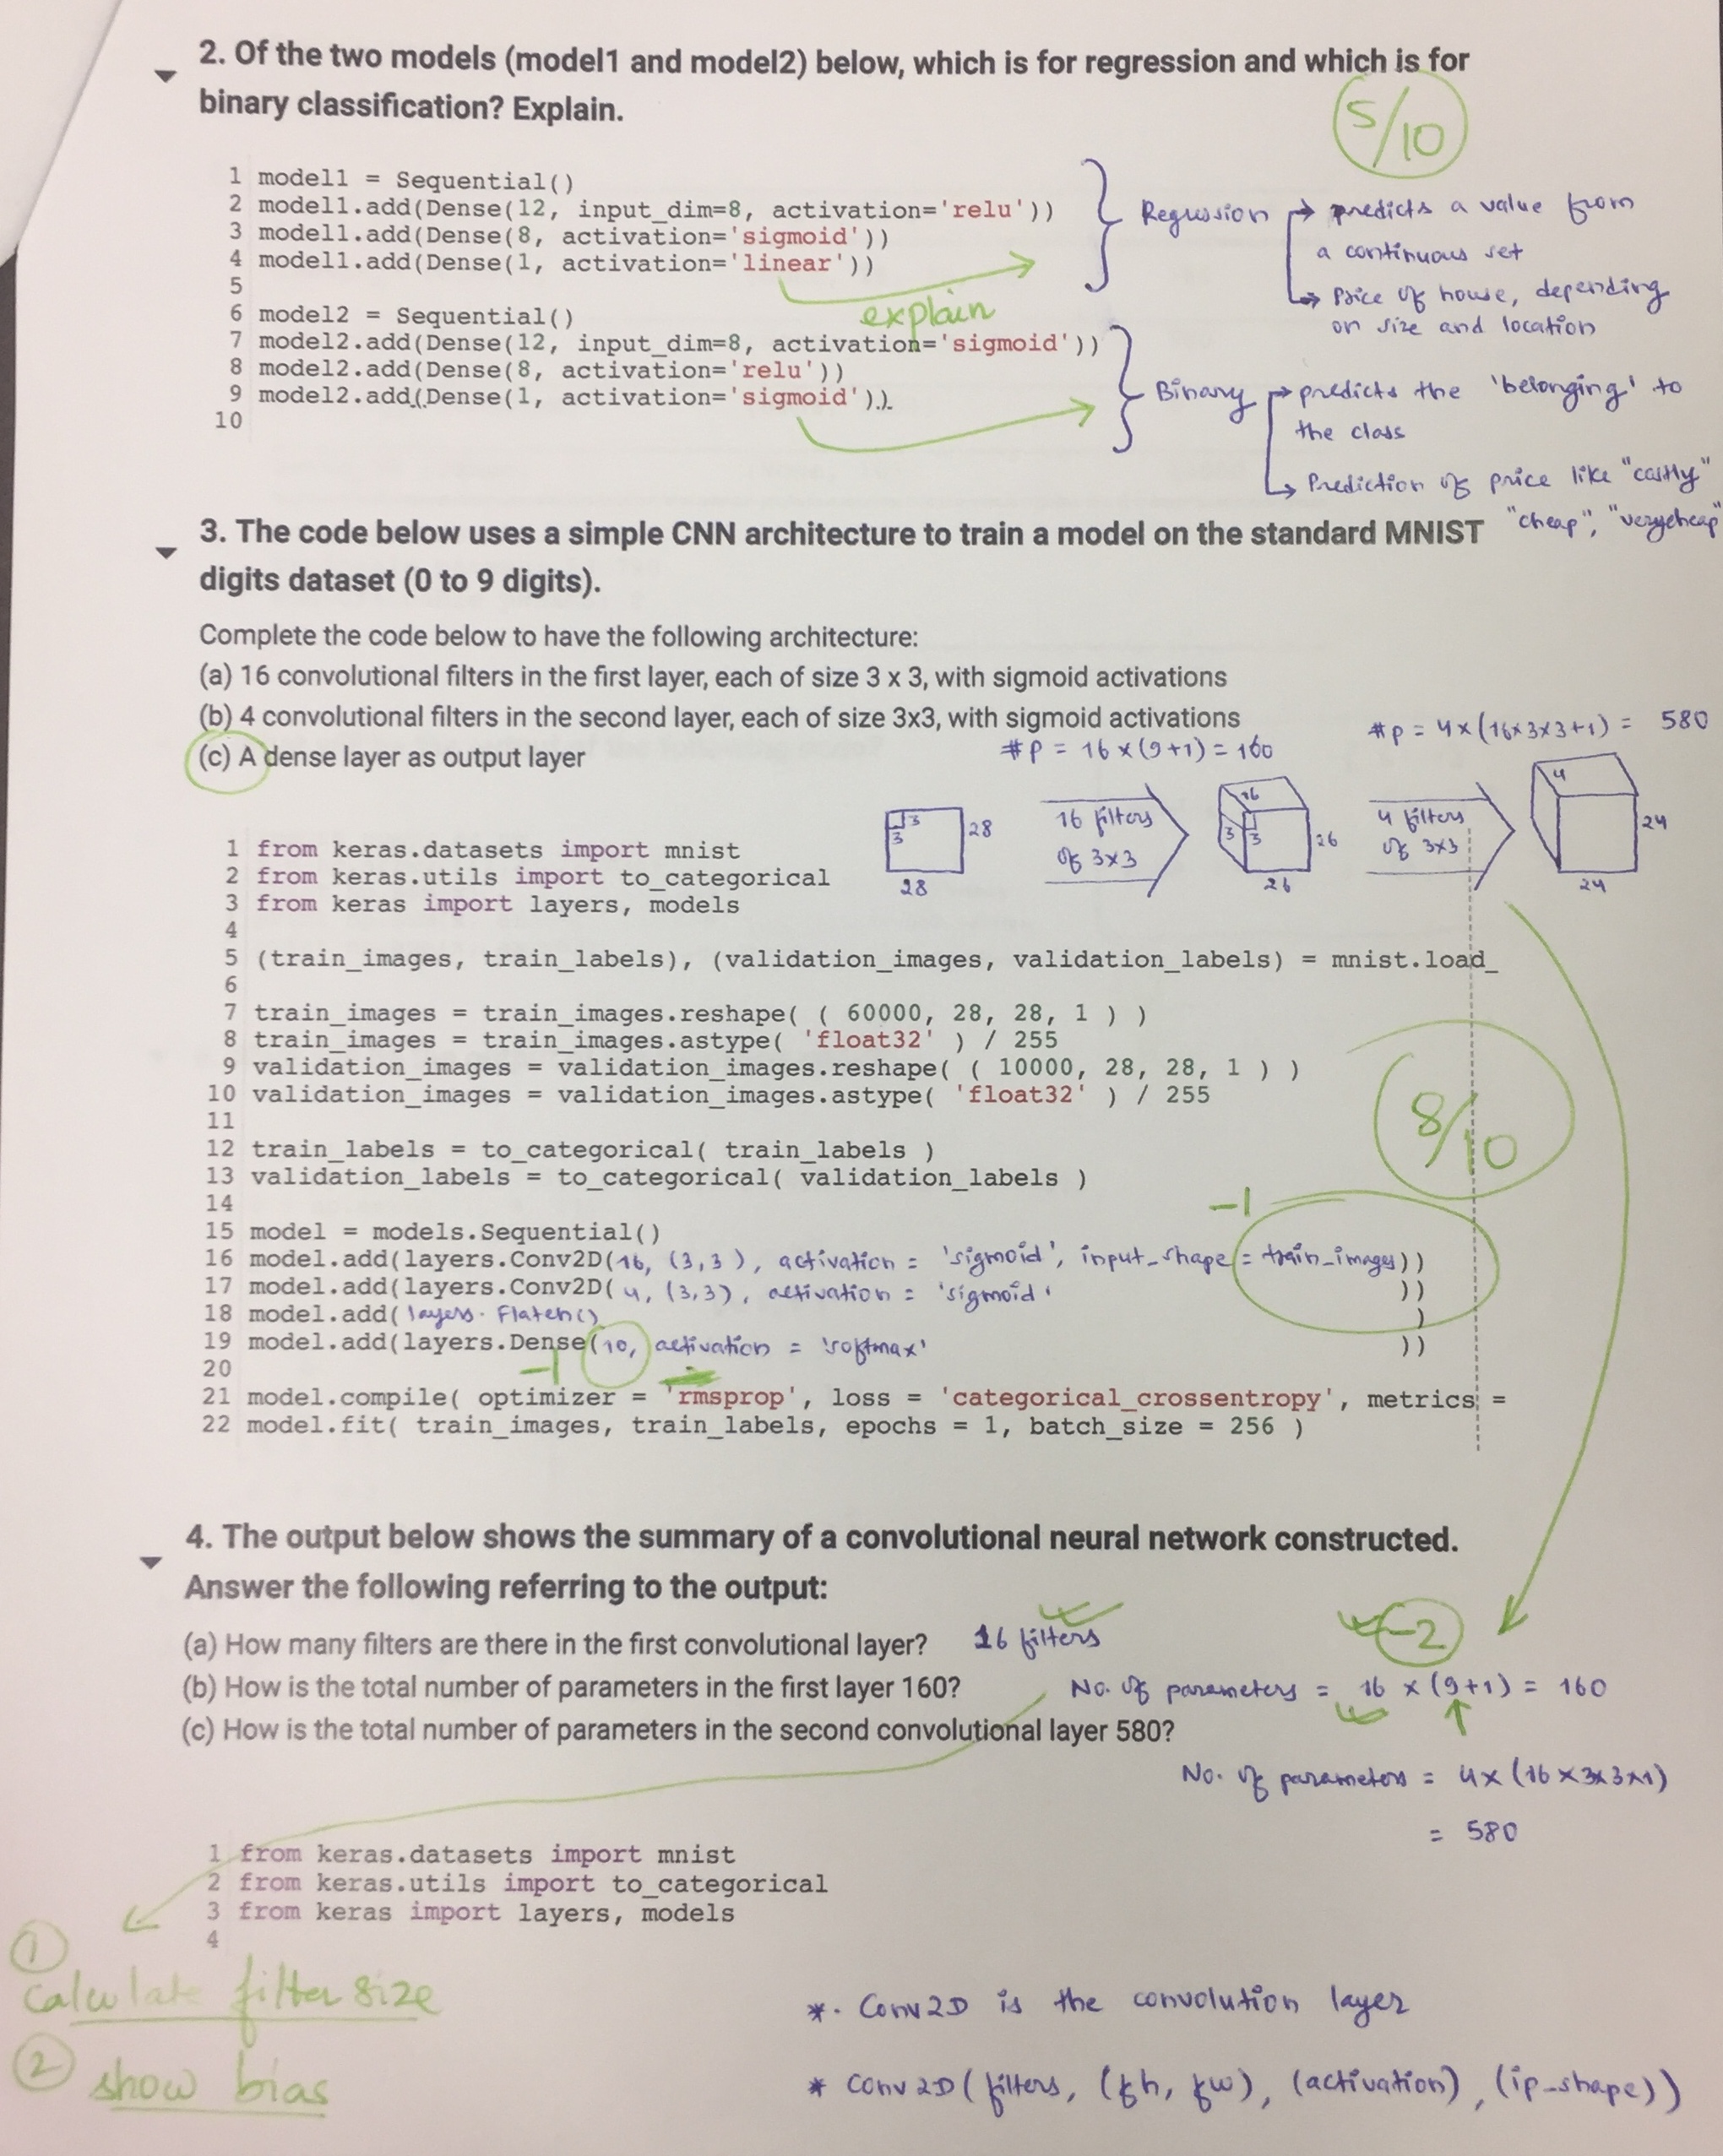 2. Of the two models (model1 and model2) below, which is for regression and which is for
binary classification? Explain.
5/10
1 model1 = Sequential()
2 model1.add(Dense(12, input_dim=8, activation='relu'))
3 model1.add(Dense(8, activation='sigmoid'))
4 model1.add(Dense(1, activation='linear'))
5
6 model2 = Sequential()
7 model2.add(Dense(12, input_dim=8, activation='sigmoid'))
8 model2.add(Dense(8, activation='relu'))
9 model2.add(Dense(1, activation='sigmoid'))
10
explain
Regression → predicts a value from
a continuous set
→ Price of house, depending
on size and location
Binary → predicts the 'belonging' to
the class
→ Prediction of price like "costly"
"cheap", "verycheap"
3. The code below uses a simple CNN architecture to train a model on the standard MNIST
digits dataset (0 to 9 digits).
Complete the code below to have the following architecture:
(a) 16 convolutional filters in the first layer, each of size 3 x 3, with sigmoid activations
(b) 4 convolutional filters in the second layer, each of size 3x3, with sigmoid activations
(c) A dense layer as output layer
#p = 16 x (9+1) = 160
#p = 4x(16x3x3+1) = 580
3
3
28
28
16 filters
of 3x3
16
3
3
26
26
4 filters
of 3x3
4
24
24
1 from keras.datasets import mnist
2 from keras.utils import to_categorical
3 from keras import layers, models
4
5 (train_images, train_labels), (validation_images, validation_labels) = mnist.load_
6
7 train_images = train_images.reshape( ( 60000, 28, 28, 1 ) )
8 train_images = train_images.astype( 'float32' ) / 255
9 validation_images = validation_images.reshape( ( 10000, 28, 28, 1 ) )
10 validation_images = validation_images.astype( 'float32' ) / 255
11
12 train_labels = to_categorical( train_labels )
13 validation_labels = to_categorical( validation_labels )
14
8/10
-1
15 model = models.Sequential()
16 model.add(layers.Conv2D(16, (3,3), activation = 'sigmoid', input_shape = train_images))
17 model.add(layers.Conv2D( 4, (3,3), activation = 'sigmoid' ))
18 model.add( layers. Flaten() )
19 model.add(layers.Dense(10, activation = 'softmax' ))
20
-1
21 model.compile( optimizer = 'rmsprop', loss = 'categorical_crossentropy', metrics =
22 model.fit( train_images, train_labels, epochs = 1, batch_size = 256 )
4. The output below shows the summary of a convolutional neural network constructed.
Answer the following referring to the output:
-2
(a) How many filters are there in the first convolutional layer? 16 filters
(b) How is the total number of parameters in the first layer 160? No. of parameters = 16 x (9+1) = 160
(c) How is the total number of parameters in the second convolutional layer 580?
No. of parameters = 4x (16x3x3x1)
= 580
1 from keras.datasets import mnist
2 from keras.utils import to_categorical
3 from keras import layers, models
4
1
calculate filter size
2
show bias
*. Conv2D is the convolution layer
* Conv2D (filters, (fh, fw), (activation), (ip_shape))